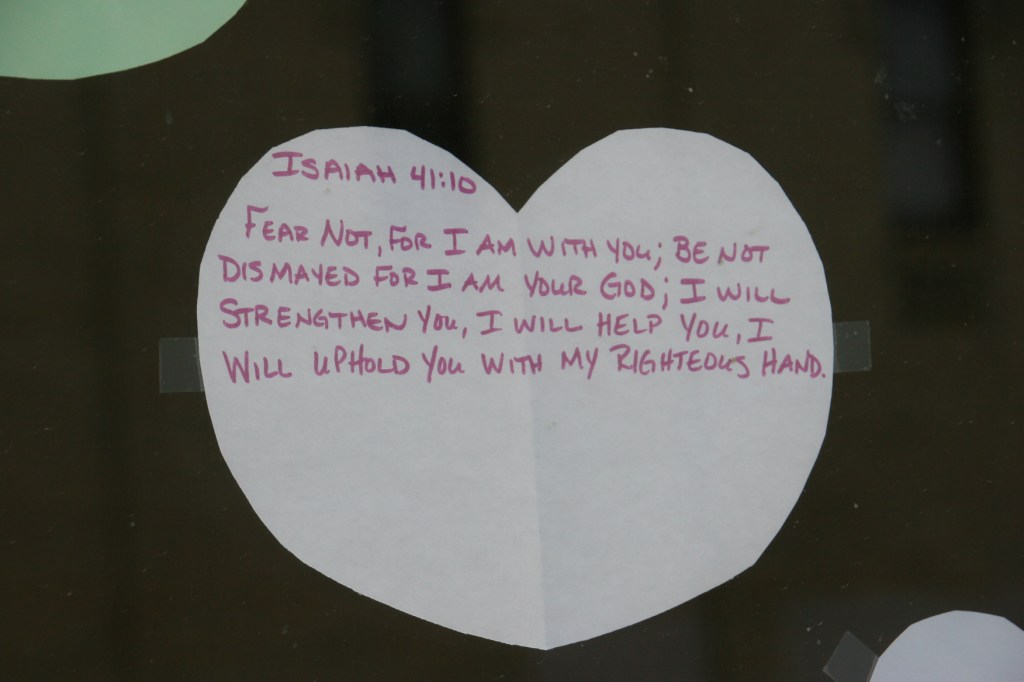 ISAIAH 41:10
FEAR NOT, FOR I AM WITH YOU; BE NOT
DISMAYED FOR I AM YOUR GOD; I WILL
STRENGTHEN YOU, I WILL HELP YOU, I
WILL UPHOLD YOU WITH MY RIGHTEOUS HAND.